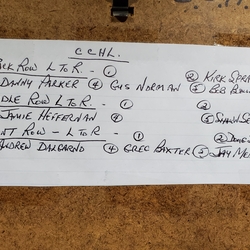 C C H L.
CK ROW L TO R. - ① ② KIRK SPRA
DANNY PARKER ④ GUS NORMAN ⑤ BOB
DLE ROW L TO R. - ① ②
JAMIE HEFFERNAN ④ ⑤ SHAWN S
NT ROW - L TO R - ① ②
ANDREW DALGARNO ④ GREG BAXTER ⑤ JAY